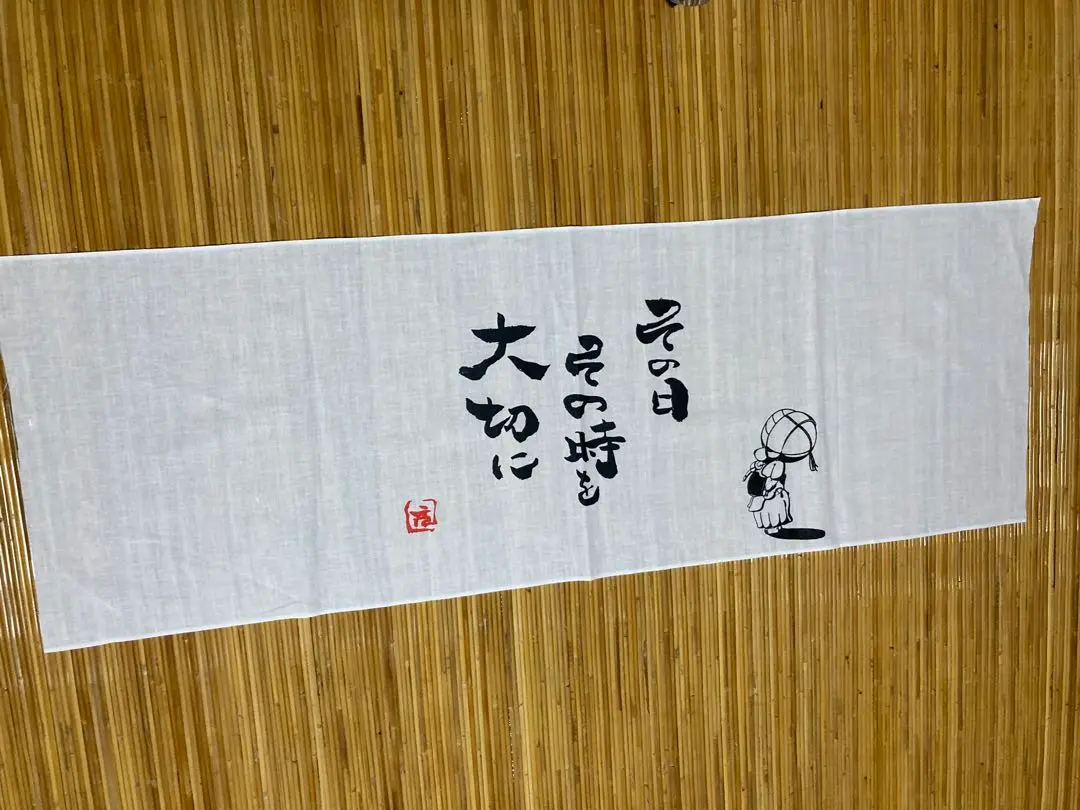 その日
その時を
大切に